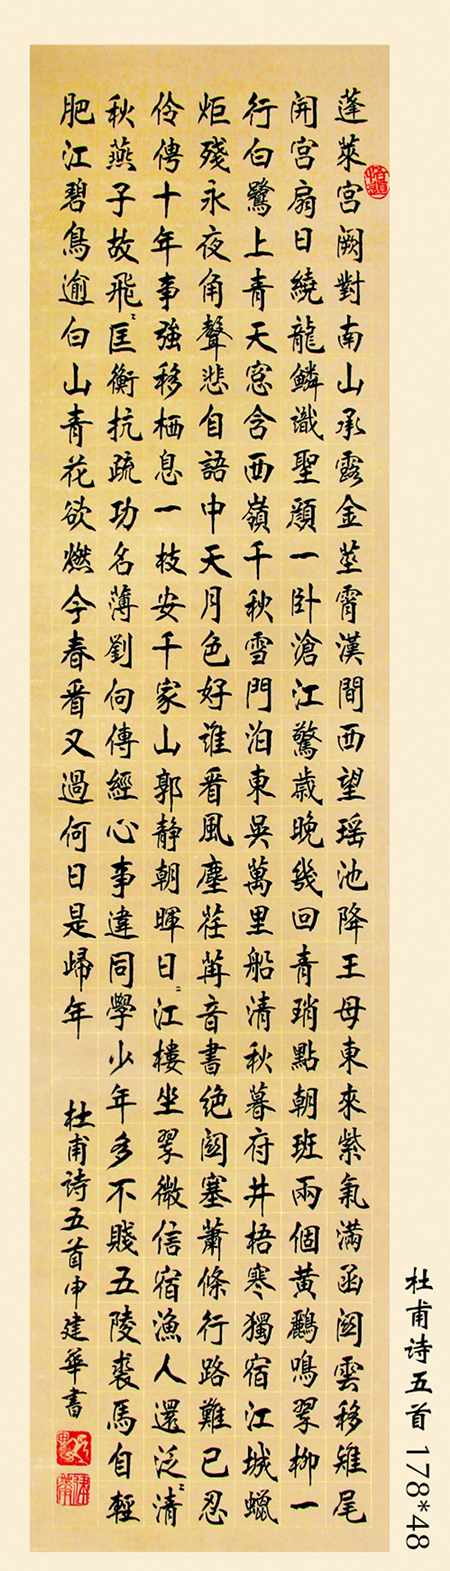 蓬萊宮闕對南山承露金莖霄漢間西望瑤池降王母東來紫氣滿函關雲移雉尾
開宮扇日繞龍鱗識聖顏一卧滄江驚歲晚幾回青瑣點朝班兩個黃鸝鳴翠柳一
行白鷺上青天窓含西嶺千秋雪門泊東吳萬里船清秋暮府井梧寒獨宿江城蠟
炬殘永夜角聲悲自語中天月色好誰看風塵荏苒音書絕關塞蕭條行路難已忍
伶俜十年事強移栖息一枝安千家山郭靜朝暉日〻江樓坐翠微信宿漁人還泛〻清
秋燕子故飛〻匡衡抗疏功名薄劉向傳經心事違同學少年多不賤五陵裘馬自輕
肥江碧鳥逾白山青花欲燃今春看又過何日是歸年 杜甫詩五首申建華書
杜甫诗五首 178*48